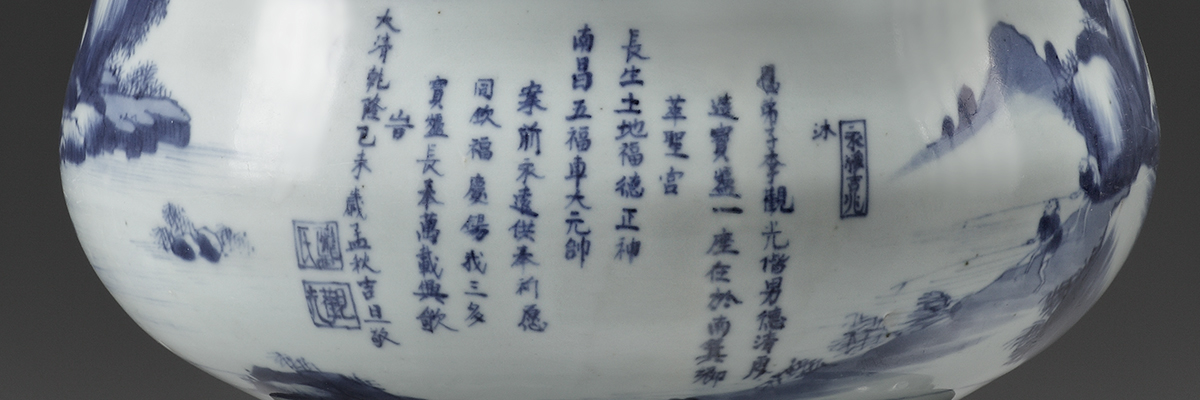 永惟吉兆
沐
恩弟子李觀光偕男德清厚
造寳爐一座在於南冀鄉
萃聖宫
長生土地福德正神
南昌五福車大元帥
案前永遠供奉祈愿
同飲福慶錫我三多
寳爐長奉萬載興歆
旹
大清乾隆己未歲孟秋吉旦敬
氏
觀光